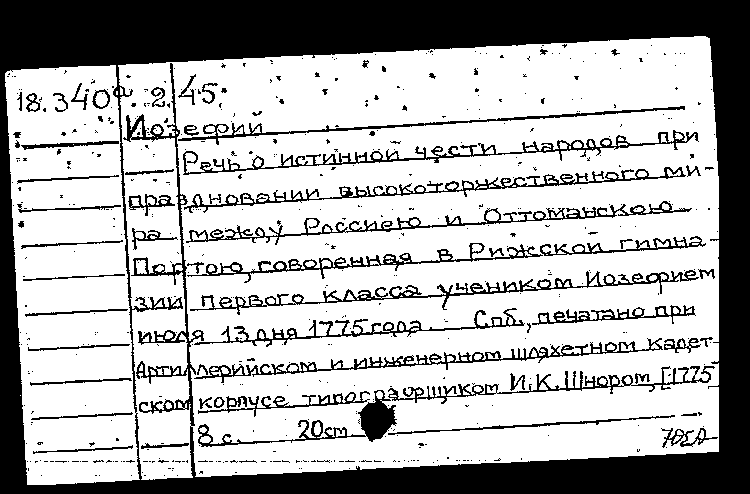 18.340а. 2.45.
Иозефий
Речь о истинной чести народов при
праздновании высокоторжественного ми-
ра между Россиею и Оттоманскою
Портою, говоренная в Рижской гимна-
зии первого класса учеником Иозефием
июля 13 дня 1775 года. Спб., печатано при
Артиллерийском и инженерном шляхетном кадет-
ском корпусе типографщиком И.К.Шнором, [1775
8 с. 20 cm